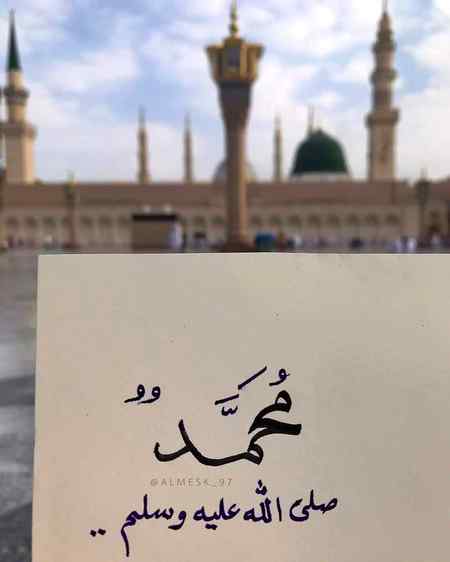 مُحَمَّدٌ
@ALMESK_97
صلى الله عليه وسلم ..